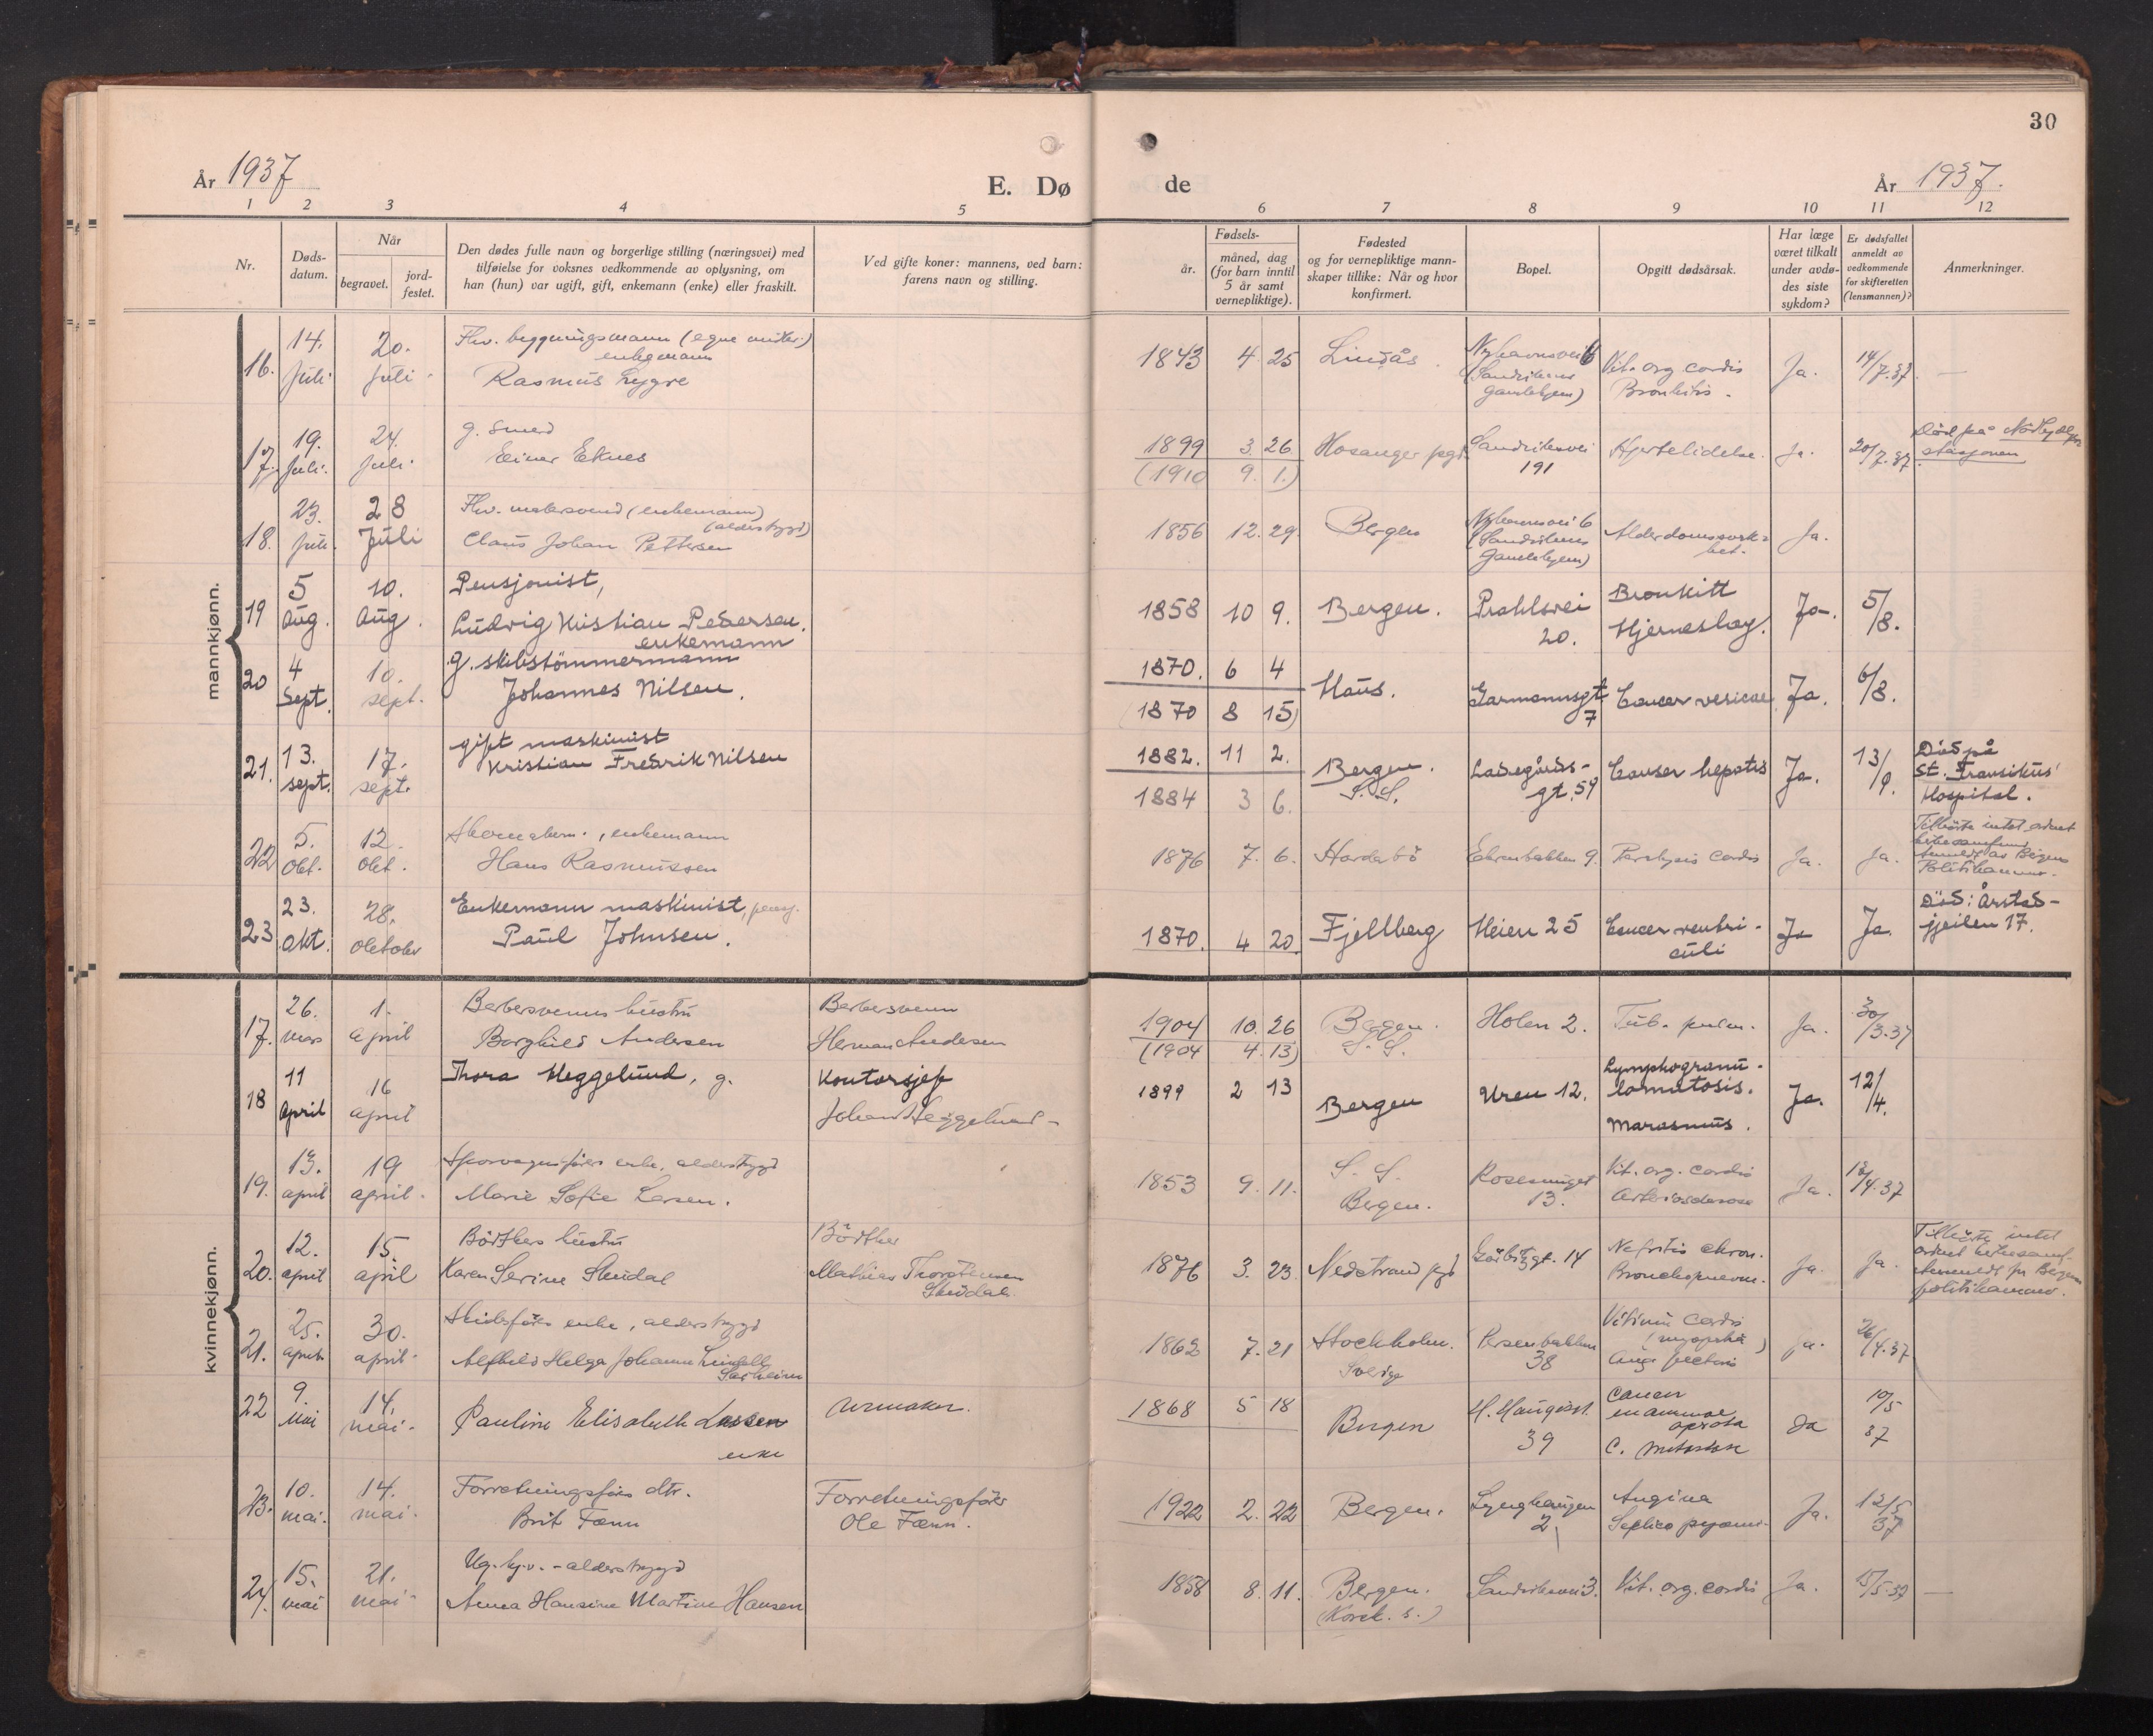 30
År 1937
E. Dø
de
År 1937.
1 2 3 4 5
6 7 8 9 10 11 12
Nr.
Døds-
datum.
Når
begravet.
jord-
festet.
Den dødes fulle navn og borgerlige stilling (næringsvei) med
tilføielse for voksnes vedkommende av oplysning, om
han (hun) var ugift, gift, enkemann (enke) eller fraskilt.
Ved gifte koner: mannens, ved barn:
farens navn og stilling.
Fødsels-
år.
måned, dag
(for barn inntil
5 år samt
vernepliktige).
Fødested
og for vernepliktige mann-
skaper tillike: Når og hvor
konfirmert.
Bopel.
Opgitt dødsårsak.
Har læge
været tilkalt
under avdø-
des siste
sykdom?
Er dødsfallet
anmeldt av
vedkommende
for skifteretten
(lensmannen)?
Anmerkninger.
mannkjønn.
16. 14. juli. 20. juli.
Fhv. bygningsmann (egne midler)
enkemann
Rasmus Lygre
1843 4. 25 Lindås.
Nyhavnsvei 6
(Sandvikens
Gamlehjem)
Vit. org cordis
Bronkitis.
Ja. 14/7.37. —
17. 19. juli. 24. juli.
g. smed
Einar Eknes
1899 3. 26
(1910 9. 1.)
Hosanger pgd.
Sandviksvei
191
Hjertelidelse. Ja. 20/7.37.
Död på
stasjonen
18. 23. juli. 28 Juli
Fhv. malersvend (enkemann)
(alderstrygd)
Claus Johan Pettersen
1856 12. 29. Bergen
Nyhavnsvei 6
(Sandvikens
Gamlehjem)
Alderdomssvak-
het.
Ja.
19 5 Aug. 10. Aug.
Pensjonist,
Ludvig Kristian Pedersen.
enkemann
1858 10 9. Bergen.
Prahlsvei
20.
Bronkitt
Hjerneslag.
Ja. 5/8.
20 4 Sept. 10. sept.
g. skibstömmermann
Johannes Nilsen.
1870. 6 4
(1870 8 15)
Haus.
Garmannsgt.
7
Cancer vesicae Ja. 6/8.
21. 13. sept. 17. sept.
gift maskinist
Kristian Fredrik Nilsen
1882. 11 2.
1884 3 6.
Bergen.
S. S.
Ladegårds-
gt. 59
Canser hepatis Ja. 13/9.
Död på
St. Fransikus'
Hospital.
22 5. Okt. 12. okt.
enkemann
Hans Rasmussen
1876 7. 6. Hardabö Ekrenbakken 9. Paralysis cordis Ja. Ja.
Tilhörte intet ordnet
kirkesamfund
Anmeldt av Bergens
Politikammer.
23. 23. okt. 28. oktober
Enkemann maskinist, pens.
Paul Johnsen.
1870. 4 20. Fjellberg Heien 25
Cancer ventri-
culi
Ja Ja.
Död: Årstad-
gjeilen 17.
kvinnekjønn.
17. 26. mars 1. april
Barbersvenns hustru
Borghild Andersen
Barbersvenn
Herman Andersen
1904 10. 26
(1904 4. 13)
Bergen.
S. S.
Holen 2. Tub. pulm. Ja. 30/3.37
18 11 April 16 april
Thora Heggelund, g.
Kontorsjef
Johan Heggelund
1899 2 13 Bergen Uren 12.
Lymphogranu-
lomatosis.
Marasmus.
Ja. 12/4.
19. 13. april 19 april.
Sporvognsförers enke, alderstrygd
Marie Sofie Larsen.
1853 9. 11.
S. S.
Bergen.
Rosesmuget
13.
Vit. org. cordis
Arteriosclerose
Ja. 13/4.37
20. 12. april 15. april
Bödkers hustru
Karen Serine Skeidal
Bödker
Mathias Thorstensen
Skeidal
1876 3. 23. Nedstrand pgd 14
Nefritis chron.
Bronchopneum.
Ja. Ja.
Tilhörte intet
ordnet kirkesamf.
Anmeldt fr Bergens
politikammer.
21. 25. april. 30. april.
enke, alderstrygd
Alfhild Helga Johanne Lindell
1862 7. 21
Stockholm.
Sverige
Persenbakken
38
Vitium cordis
Ang. pectoris
Ja. 26/4.37
22 9. Mai 14. mai.
Pauline Elisabeth Lassen
enke
Urmaker.
1868 5 18 Bergen
H. Haugesgt.
39
Cancer
mammae
operata
C. metastase
Ja 10/5 37
23. 10. mai. 14. mai.
Forretningsförers dtr.
Brit Fænn
Forretningsförer
Ole Fænn.
1922 2. 22 Bergen.
Lynghaugen
2.
Angina
Septico pyæmi.
Ja. 12/5 37
24. 15. mai 21. mai
Ug. hj.v. - alderstrygd
Anna Hansine Martine Hansen
1858 8. 11.
Bergen.
(Korsk. s.)
Sandviksvei 3. Vit. org. cordis Ja. 15/5.37 —